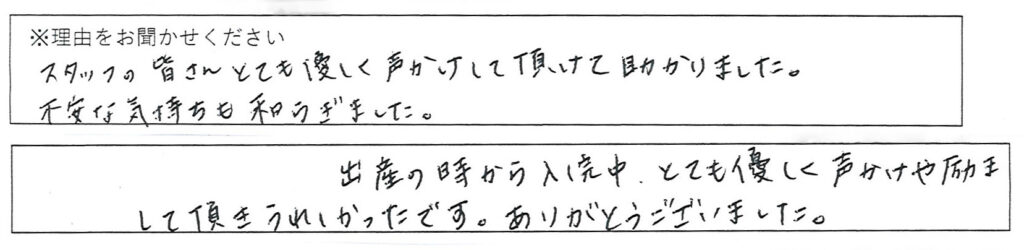 ※理由をお聞かせください
スタッフの皆さんとても優しく声かけして頂けて助かりました。
不安な気持ちも和らぎました。
出産の時から入院中、とても優しく声かけや励ま
して頂きうれしかったです。ありがとうございました。